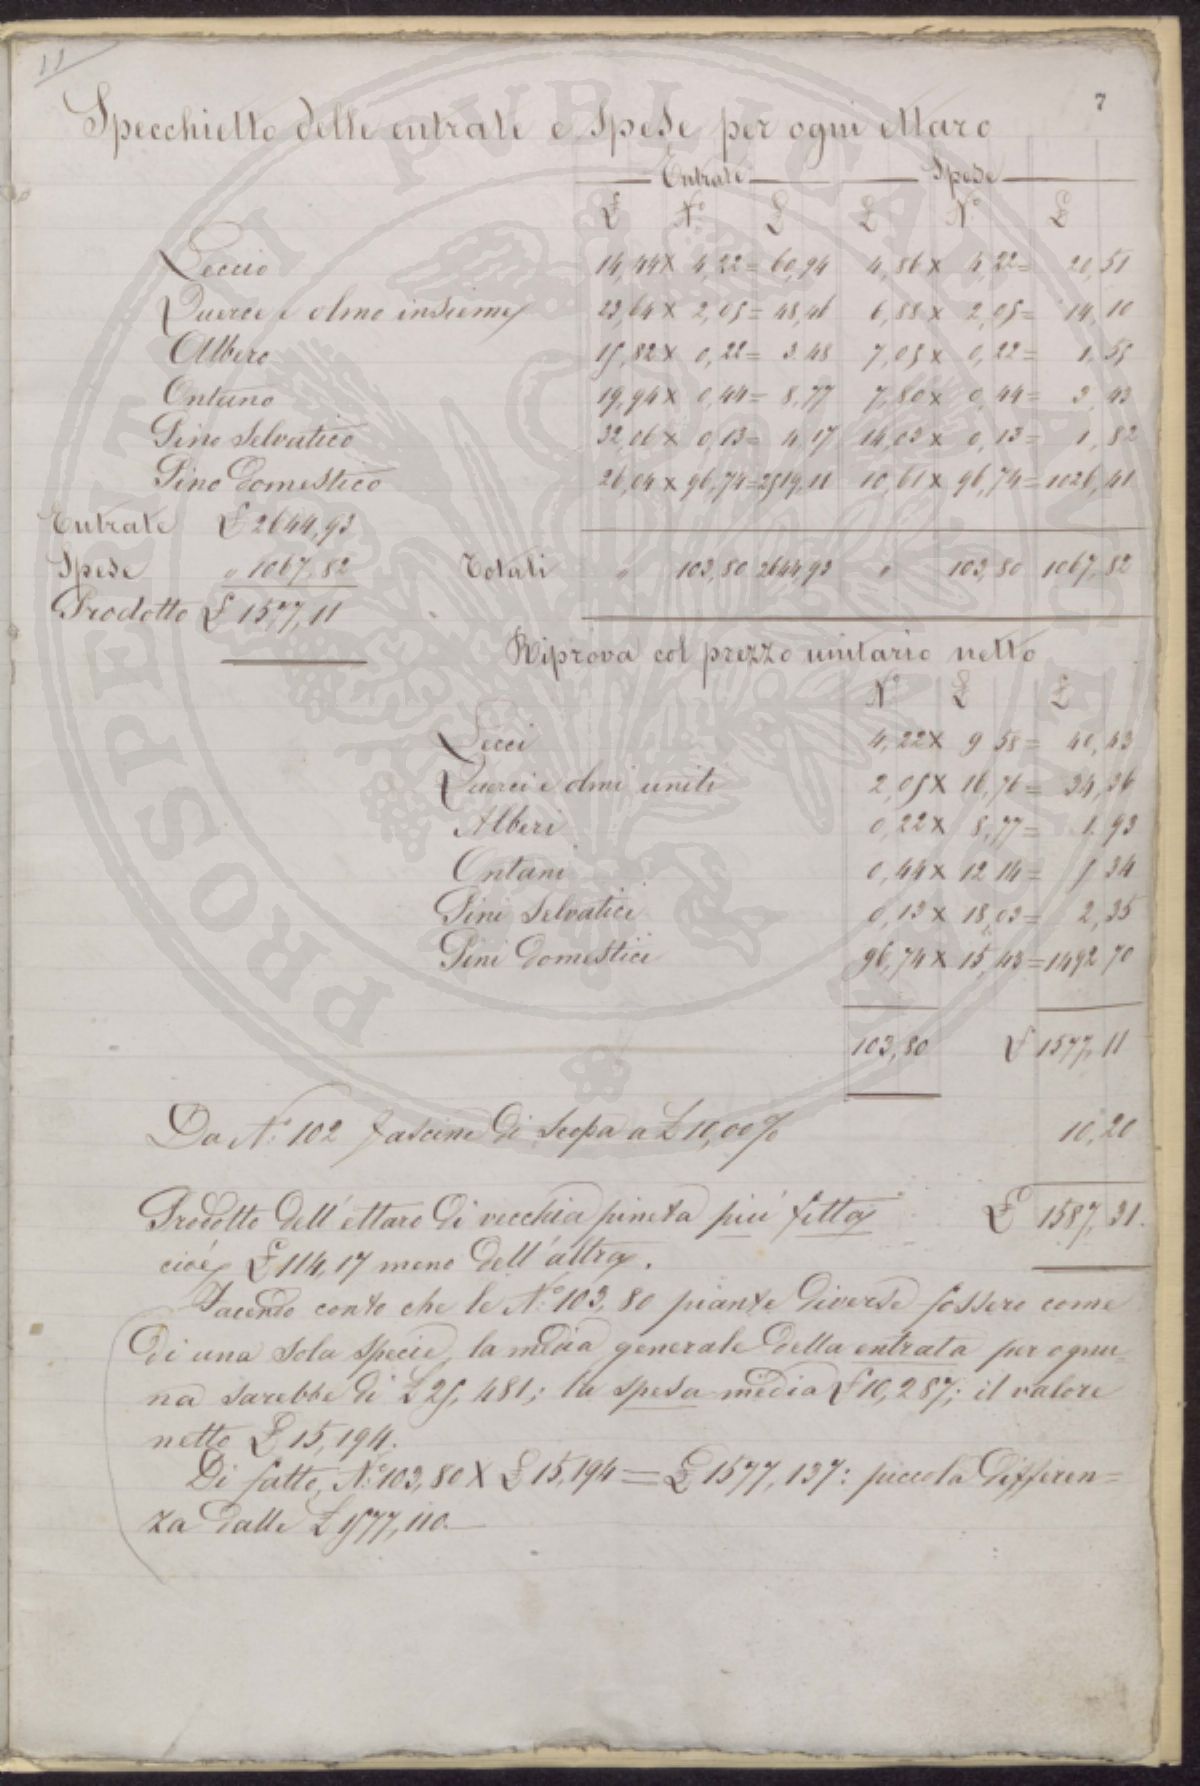 11
7
Specchietto delle entrate e Spese per ogni ettaro
Entrate Spese
£ N.º £ £ N.º £
Leccio 14,44 x 4,22 = 60,94 4,86 x 4,22 = 20,51
Querce e olmo insieme 23,64 x 2,05 = 48,46 6,88 x 2,05 = 14,10
Albero 15,82 x 0,22 = 3,48 7,05 x 0,22 = 1,55
Ontano 19,94 x 0,44 = 8,77 7,80 x 0,44 = 3,43
Pino Selvatico 32,06 x 0,13 = 4,17 14,03 x 0,13 = 1,82
Pino Domestico 26,04 x 96,74 = 2519,11 10,61 x 96,74 = 1026,41
Entrate £ 2644,93
Spese " 1067,82 Totali " 103,80 2644,93 " 103,80 1067,82
Prodotto £ 1577,11
Riprova col prezzo unitario netto
N.º £ £
Lecci 4,22 x 9 58 = 40,43
Querci e olmi uniti 2,05 x 16,76 = 34,36
Alberi 0,22 x 8,77 = 1,93
Ontani 0,44 x 12 14 = 5 34
Pini Selvatici 0,13 x 18,03 = 2,35
Pini Domestici 96,74 x 15,43 = 1492 70
103,80 £ 1577,11
Da N.º 102 fascine di scopa a £ 10,00 % 10,20
Prodotto dell'ettaro di vecchia pineta più fitta £ 1587,31.
cioè £ 114,17 meno dell'altra.
Facendo conto che le N.º 103,80 piante diverse fossero come
di una sola specie, la media generale della entrata per ognu=
na sarebbe di £ 25,481; la spesa media £ 10,287; il valore
netto £ 15,194.
Di fatto, N.º 103,80 X £ 15,194 = £ 1577,137: piccola differen=
za dalle £ 1577,110.
PROSPERITATI PVBLICAE AVGENDAE